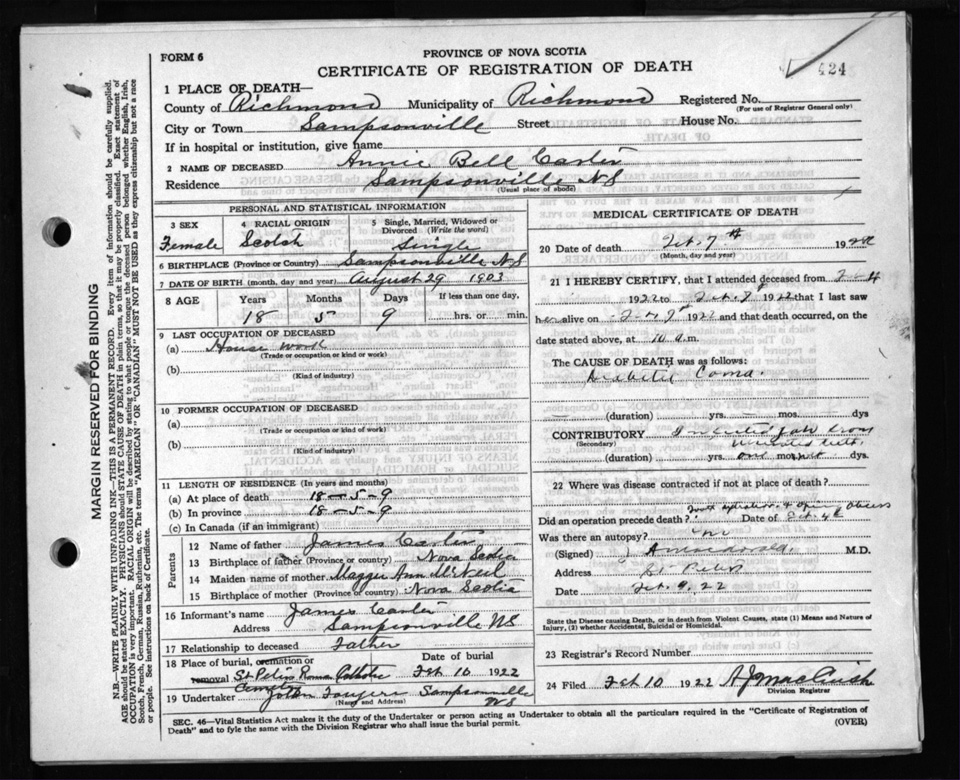 FORM 6
PROVINCE OF NOVA SCOTIA
CERTIFICATE OF REGISTRATION OF DEATH
424
1 PLACE OF DEATH—
County of Richmond Municipality of Richmond Registered No.
(For use of Registrar General only)
City or Town Sampsonville Street House No.
If in hospital or institution, give name
2 NAME OF DECEASED Annie Bell Carter
Residence Sampsonville N S
(Usual place of abode)
PERSONAL AND STATISTICAL INFORMATION
3 SEX 4 RACIAL ORIGIN 5 Single, Married, Widowed or Divorced (Write the word)
Female Scotch Single
6 BIRTHPLACE (Province or Country) Sampsonville N S
7 DATE OF BIRTH (month, day and year) August 29 1903
8 AGE Years Months Days If less than one day,
18 5 9 hrs. or min.
9 LAST OCCUPATION OF DECEASED
(a) House work
(Trade or occupation or kind of work)
(b)
(Kind of industry)
10 FORMER OCCUPATION OF DECEASED
(a)
(Trade or occupation or kind of work)
(b)
(Kind of industry)
11 LENGTH OF RESIDENCE (In years and months)
(a) At place of death 18 - 5 - 9
(b) In province 18 - 5 - 9
(c) In Canada (if an immigrant)
Parents
12 Name of father James Carter
13 Birthplace of father (Province or country) Nova Scotia
14 Maiden name of mother Maggie Ann McNeil
15 Birthplace of mother (Province or country) Nova Scotia
16 Informant's name James Carter
Address Sampsonville NS
17 Relationship to deceased Father
18 Place of burial, cremation or removal Date of burial
St Peters Roman Catholic Feb 10 1922
19 Undertaker John Sampsonville
(Name and Address) NS
MEDICAL CERTIFICATE OF DEATH
20 Date of death Feb. 7th 1922
(Month, day and year)
21 I HEREBY CERTIFY, that I attended deceased from Feb 4
1922 to Feb. 7 1922 that I last saw
her alive on Feb 7 1922 and that death occurred, on the
date stated above, at 10 a.m.
The CAUSE OF DEATH was as follows:
Diabetic Coma.
(duration) yrs. mos. dys
CONTRIBUTORY
(Secondary)
(duration) yrs. mos. dys.
22 Where was disease contracted if not at place of death?
Did an operation precede death? Date of Feb. 4th
Was there an autopsy? no
(Signed) M.D.
Address St Peters
Date Feb. 9, 22
State the Disease causing Death, or in death from Violent Causes, state (1) Means and Nature of
Injury, (2) whether Accidental, Suicidal or Homicidal.
23 Registrar's Record Number
24 Filed Feb 10 1922
Division Registrar
SEC. 46—Vital Statistics Act makes it the duty of the Undertaker or person acting as Undertaker to obtain all the particulars required in the "Certificate of Registration of
Death" and to fyle the same with the Division Registrar who shall issue the burial permit. (OVER)
MARGIN RESERVED FOR BINDING
N.B.—WRITE PLAINLY WITH UNFADING INK—THIS IS A PERMANENT RECORD. Every item of information should be carefully supplied.
AGE should be stated EXACTLY. PHYSICIANS should STATE CAUSE OF DEATH in plain terms, so that it may be properly classified. Exact statement of
OCCUPATION is very important. RACIAL ORIGIN will be described by stating to what people or tongue the deceased person belonged whether English, Irish,
Scotch, French, German, Russian, Ruthenian, etc. The terms "AMERICAN" OR "CANADIAN" MUST NOT BE USED as they express citizenship but not a race
or people. See instructions on back of Certificate.